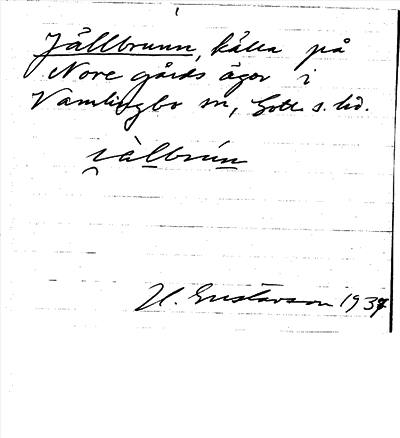 Jällbrunn, källa på
Nore gårds ägor i
Vamlingbo sn, Gotl. s. hd.
i̯àlbrún
H. Gustavson 1937